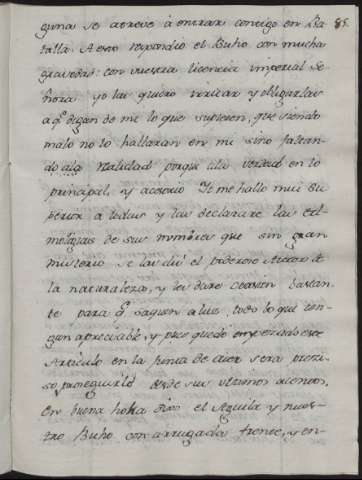 guna se atreve à entrar contigo en Ba
85.
talla. A esto respondio el Buho con mucha
gravedad: con vuestra licencia imperial Se
ñora yo las quiero irritar y obligarlas
a q.e digan de mi lo que supieren, que siendo
malo no lo hallaran en mi sino faltan
do à la realidad porque à la verdad en lo
principal, y acesorio me hallo mui su
perior a todas y las declarare las eti
mologias de sus nombres que sin gran
misterio se las diò el poderoso Autor de
la naturaleza, y les dare ocasion bastan
te para q.e saquen a luz, todo lo que ten
gan apreciable, y pues quedò empezado este
Articulo en la junta de ayer sera preci
so, proseguirlo desde sus ultimos acentos,
En buena hora dixo el Aguila y nues
tro Buho con arrugada frente, y en